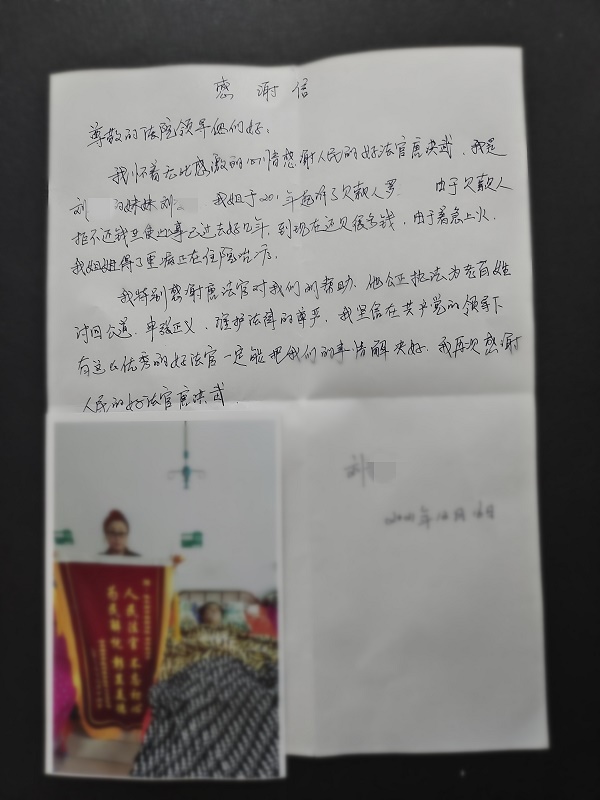 感谢信
尊敬的法院领导他们好：
我怀着无比感激的心情感谢人民的好法官唐洪武，我是
刘 的妹妹刘 我姐于 年起诉了欠款人罗 由于欠款人
拒不还 此事已过去好几年，到现在还欠很多钱，由于着急上火，
我姐姐得了重病正在住院治疗。
我特别感谢唐法官对我们的帮助，他公正执法为老百姓
讨回公道，申张正义，维护法律的尊严，我坚信在共产党的领导下
有这么优秀的好法官一定能把我们的事情解决好，我再次感谢
人民的好法官唐洪武．
刘
2021年12月 日
人民法官 不忘初心
为民解忧